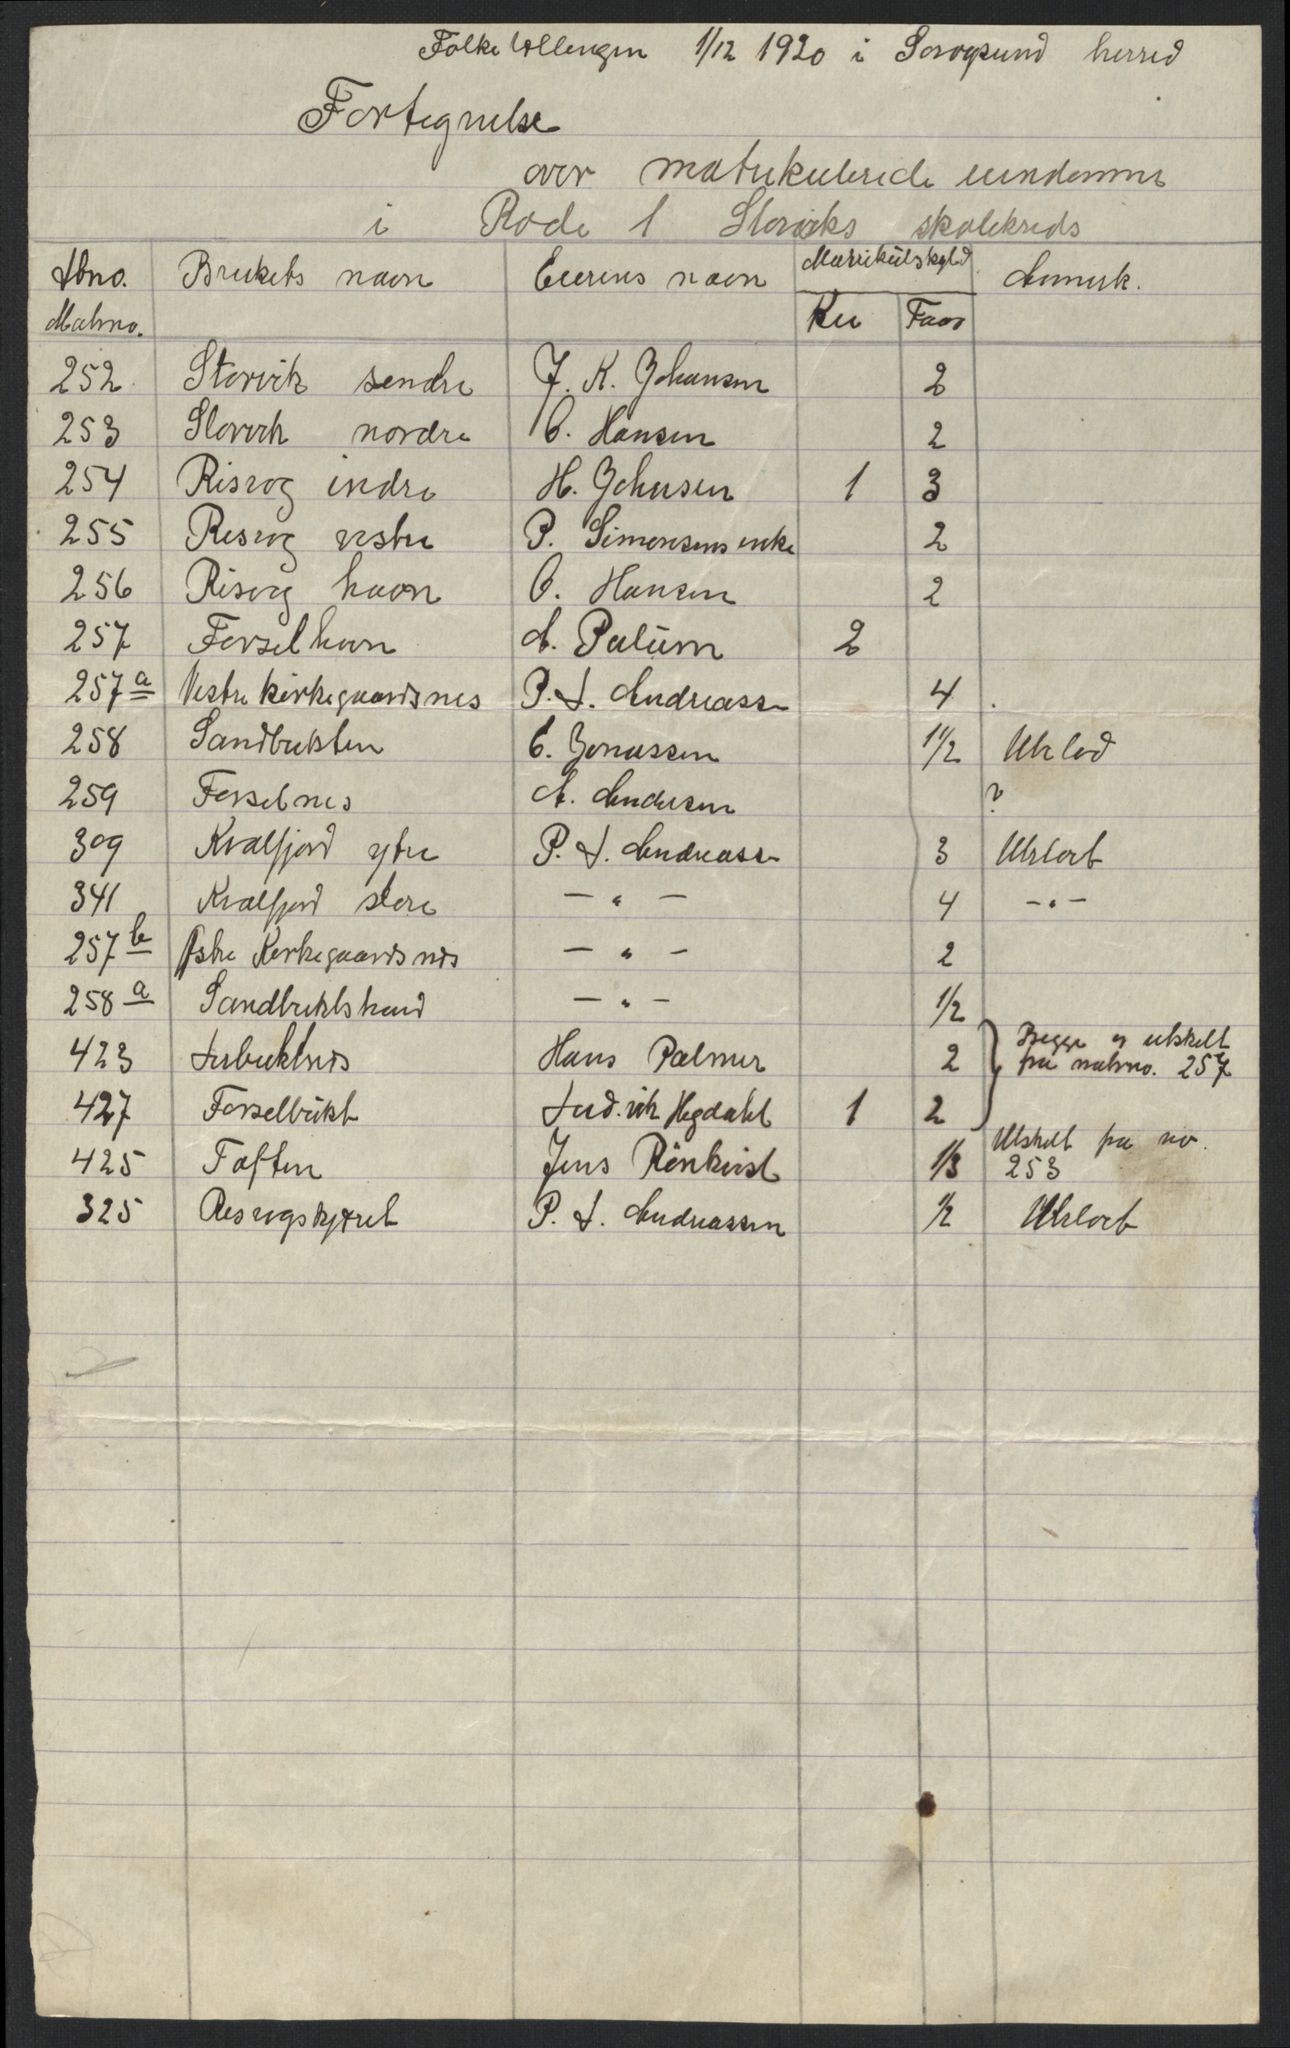 Folketellingen 1/12 1920 i Sørøysund herred
Fortegnelse
over matrikulerede eiendomme
i Rode 1 Storviks skolekreds
Lbno. Brukets navn Eierens navn Matrikulskyld Anmerk.
Matrno. Ku Faar
252 Storvik søndre J. K. Johansen 2
253 Storvik nordre C. Hansen 2
254 Risvog indre H. Johnsen 1 3
255 Risvog vestre P. Simonsens enke 2
256 Risvog havn O. Hansen 2
257 Forsølhavn A. 2
257 a Vestre kirkegaardsnes P. L. Andreassen 4
258 Sandbukten C. Jonassen 1 1/2 Utlod
259 Forsølnes A. Andersen ?
309 Kvalfjord ytre P. L. Andreassen 3 Utslott
341 Kvalfjord store — " — 4 — " —
257 b Østre Kirkegaardsnes — " — 2
258 a Sandbuktstrand — " — 1/2
423 Lerbuktnes Hans Palmer 2 Begge er utskilt fra matrno. 257
427 Forsølbukt Ludvik Hegdahl 1 2
425 Toften Jens Rönkvist 1/3 Utskilt fra no. 253
325 Risvogskjæret P. L. Andreassen 1/2 Utslott